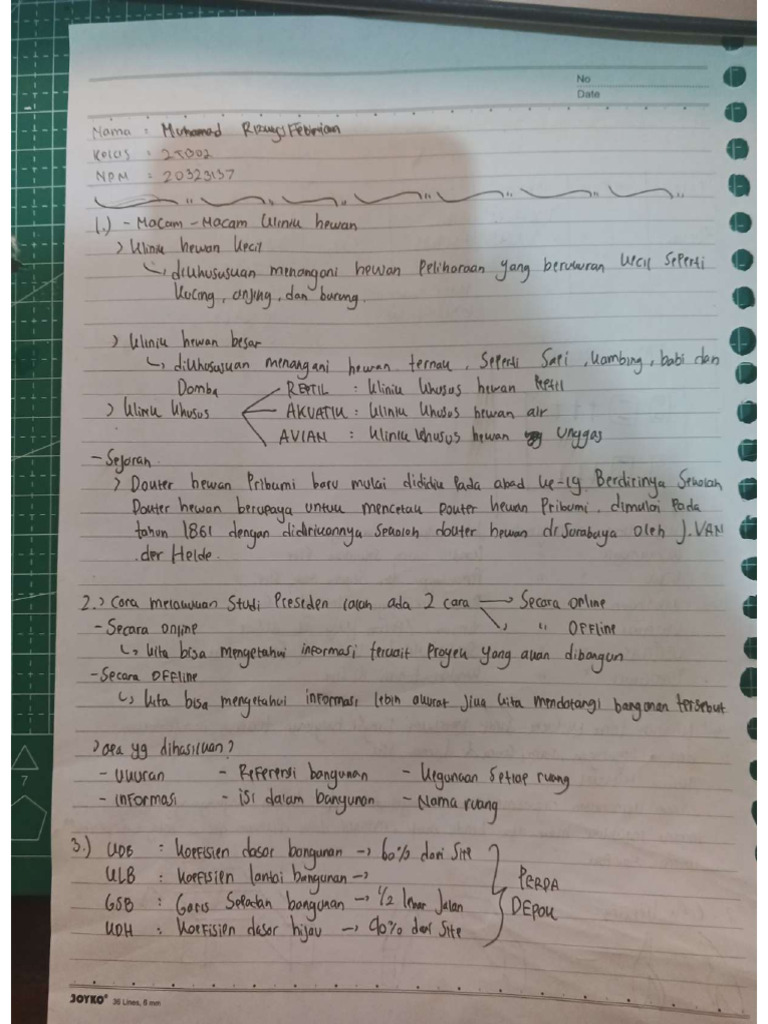 No
Date
Nama : Muhamad Rizuqi Febrian
Kelas : 2TB02
NPM : 20323137
1.) - Macam - Macam klinik hewan
> klinik hewan kecil
↳ dikhususkan menangani hewan Peliharaan yang berukuran kecil seperti
kucing, anjing, dan burung.
> klinik hewan besar
↳ dikhususkan menangani hewan ternak, seperti Sapi, kambing, babi dan
Domba
REPTIL : klinik khusus hewan Reptil
> klinik khusus AKUATIK : klinik khusus hewan air
AVIAN : klinik khusus hewan Unggas
- Sejarah
> Dokter hewan Pribumi baru mulai dididik Pada abad ke-19 Berdirinya Sekolah
Dokter hewan berupaya untuk mencetak Dokter hewan Pribumi. dimulai Pada
tahun 1861 dengan didirikannya sekolah dokter hewan di Surabaya oleh J. VAN
der Helde.
2.> Cara melakukan Studi Preseden ialah ada 2 cara → Secara online
- Secara online ↘ " OFFline
↳ kita bisa mengetahui informasi terkait Proyek yang akan dibangun
- Secara OFFline
↳ kita bisa mengetahui informasi lebih akurat jika kita mendatangi bangunan tersebut
> apa yg dihasilkan?
- Ukuran - Referensi bangunan - kegunaan setiap ruang
- Informasi - isi dalam bangunan - Nama ruang
3.) KDB : Koefisien dasar bangunan → 60% dari Site
KLB : Koefisien lantai bangunan →
GSB : Garis Sepadan bangunan → 1/2 lebar jalan
KDH : Koefisien dasar hijau → 40% dari Site
PERDA
DEPOK
JOYKO® 36 Lines, 6 mm
7